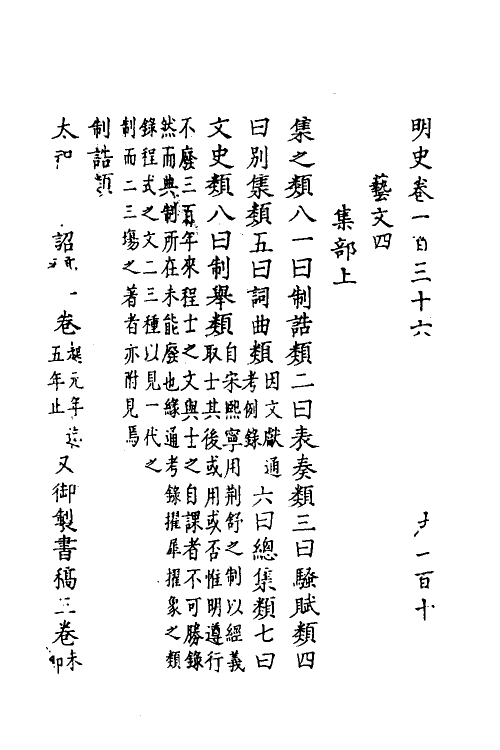 明史卷一百三十六
一百十
藝文四
集部上
集之類八一曰制誥類二曰表奏類三曰騷賦類四
曰別集類五曰詞曲類因文獻通考例錄六曰總集類七曰
文史類八曰制舉類自宋熙寧用荆舒之制以經義取士其後或用或否惟明遵行
不廢三百年來程士之文與士之自課者不可勝錄
然而典制所在未能廢也緣通考錄擢犀擢象之類
錄程式之文二三種以見一代之
制而二三塲之著者亦附見焉
制誥類
太 詔 一卷 元年 五年止又御製書稿三卷